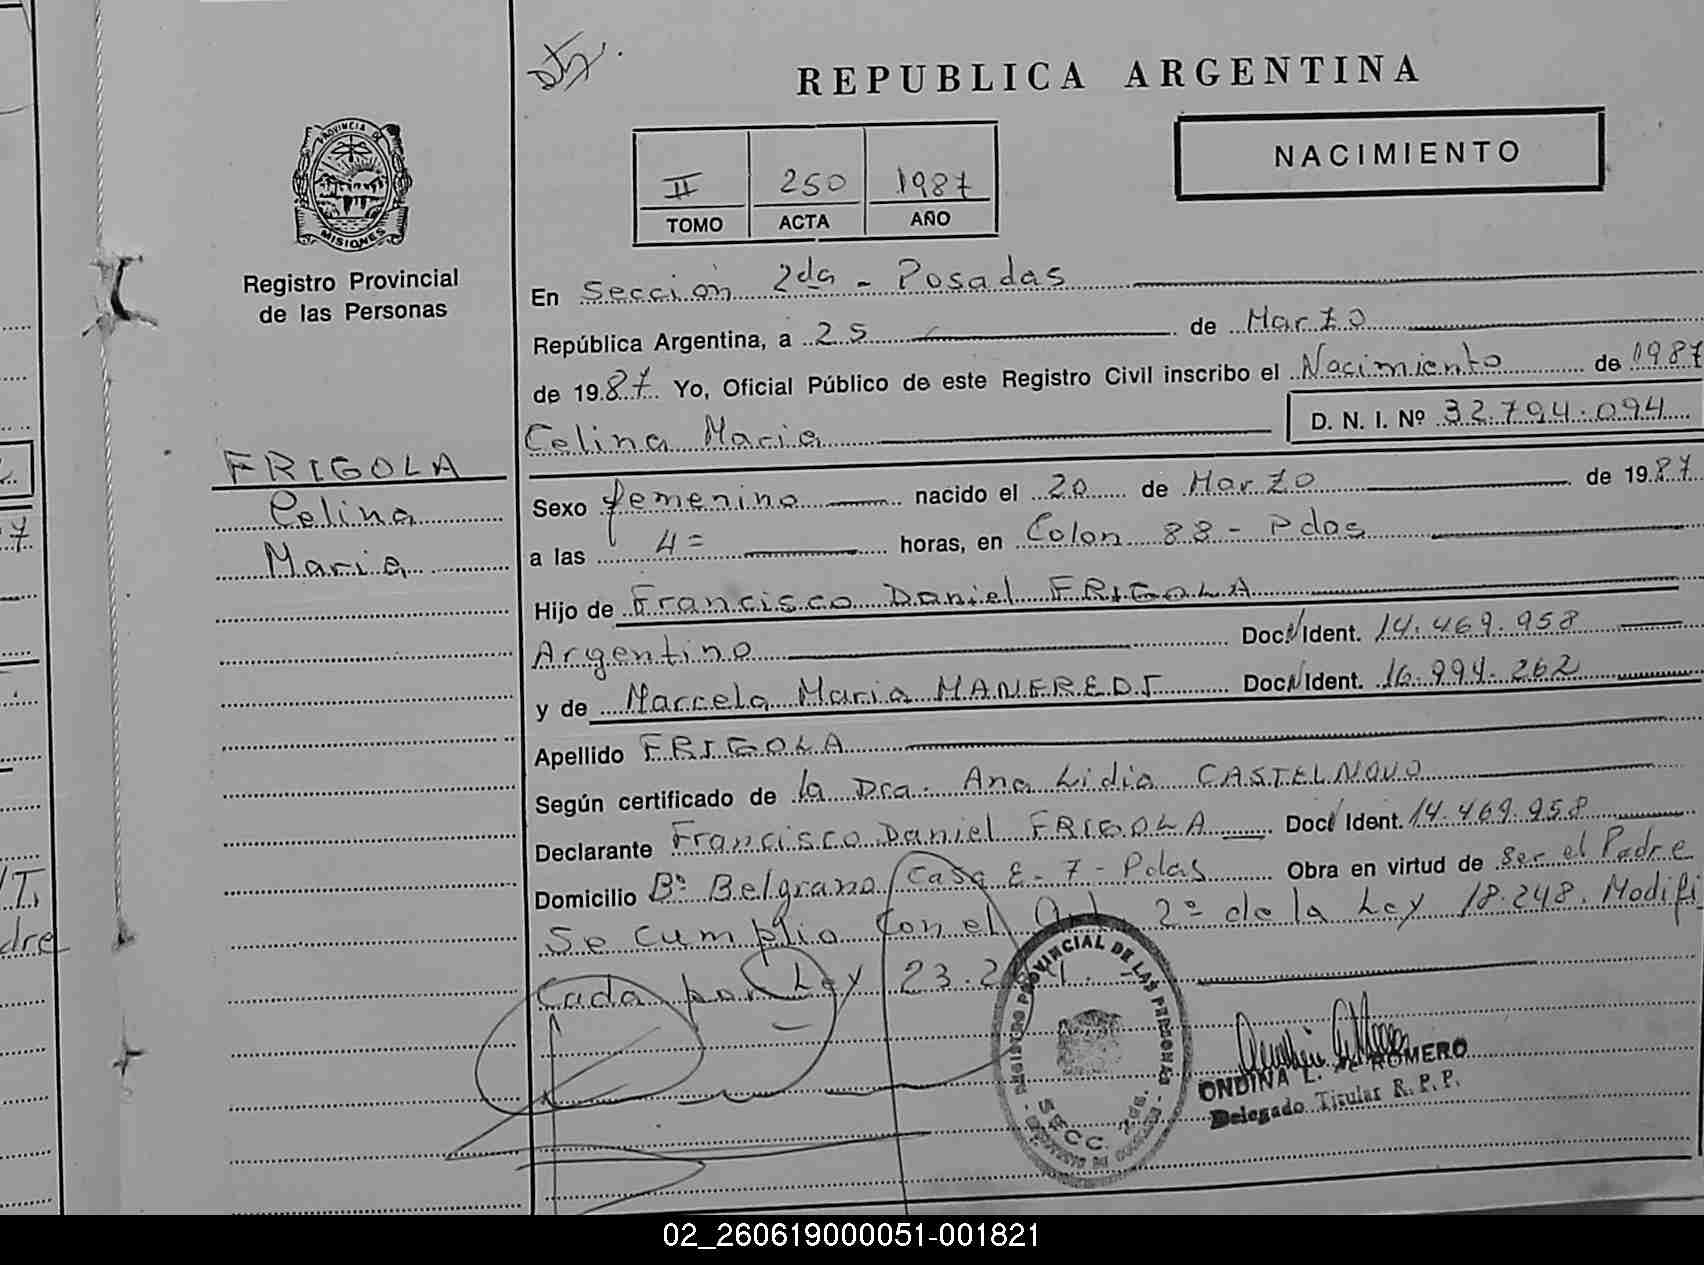 REPUBLICA ARGENTINA
NACIMIENTO
II 250 1987
TOMO ACTA AÑO
PROVINCIA DE
MISIONES
Registro Provincial
de las Personas
FRIGOLA
Celina
Maria
En Sección 2da - Posadas
República Argentina, a 25 de Marzo
de 1987 Yo, Oficial Público de este Registro Civil inscribo el Nacimiento de 1987
Celina Maria D. N. I. Nº 32.794.094
Sexo femenino nacido el 20 de Marzo de 1987
a las 4= horas, en Colon 88 - Pdas
Hijo de Francisco Daniel FRIGOLA
Argentino Doc. Ident. 14.469.958
y de Marcela Maria MANFREDI Doc. Ident. 16.994.262
Apellido FRIGOLA
Según certificado de la Dra. Ana Lidia CASTELNOVO
Declarante Francisco Daniel FRIGOLA Doc. Ident. 14.469.958
Domicilio Bº Belgrano Casa E-7-Pdas Obra en virtud de Ser el Padre
Se cumplio con el Art. 2º de la Ley 18.248. Modifi
cada por Ley 23.
REGISTRO PROVINCIAL DE LAS PERSONAS
SECC. 2da.
ONDINA L. de ROMERO
Delegado Titular R. P. P.
dre
02_260619000051-001821